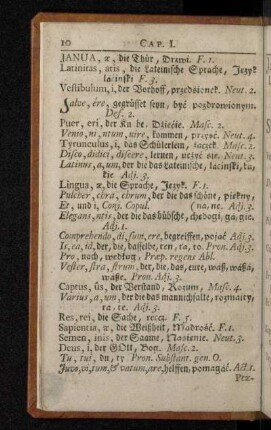 10 CAP. I.
JANUA, æ, die Thür, Drzwi. F. 1.
Latinitas, atis, die Lateinische Sprache, Język
łaćinski F. 3.
Vestibulum, i, der Vorhoff, przedsionek. Neut. 2.
Salve, ére, gegrüsset seyn, być pozdrowionym.
Def. 2.
Puer, eri, der Knabe. Dziećię. Masc. 2.
Venio, ni, ntum, nire, kommen, przyść. Neut. 4.
Tyrunculus, i, das Schülerlein, żaczek Masc. 2.
Disco, didici, discere, lernen, uczyć się. Neut. 3.
Latinus, a, um, der die das lateinische, łacinski, ka,
kie Adj. 3.
Lingua, æ, die Sprache, Język. F. 1.
Pulcher, chra, chrum, der die das schöne, piękny,
Et, und, i, Conj. Copul. (na, ne. Adj. 3.
Elegans, ntis, der die das hübsche, chędogi, ga, gie.
Adj. 1.
Comprehendo, di, sum, ere, begreiffen, pojąć Adj. 3.
Is, ea, id, der, die, dasselbe, ten, ta, to. Pron. Adj. 3.
Pro, nach, według. Præp. regens Abl.
Vester, stra, strum, der, die, das, eure, wasz, wasza,
wasze. Pron. Adj. 3.
Captus, ûs, der Verstand, Rozum, Masc. 4.
Varius, a, um, der die das mannichfalte, rozmaity,
ta, te. Adj. 3.
Res, rei, die Sache, rzecz. F. 5.
Sapientia, æ, die Weißheit, Mądrość. F. 1.
Semen, inis, der Saame, Nasienie. Neut. 3.
Deus, i, der GOtt, Bog. Masc. 2.
Tu, tui, du, ty Pron. Substant. gen. O.
Juvo, vi, tum, & vatum, are, helffen, pomagać. Act. 1.
Præ-